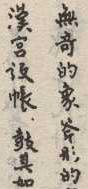 無奇的象答形的
漢宮設帳．鼓其如